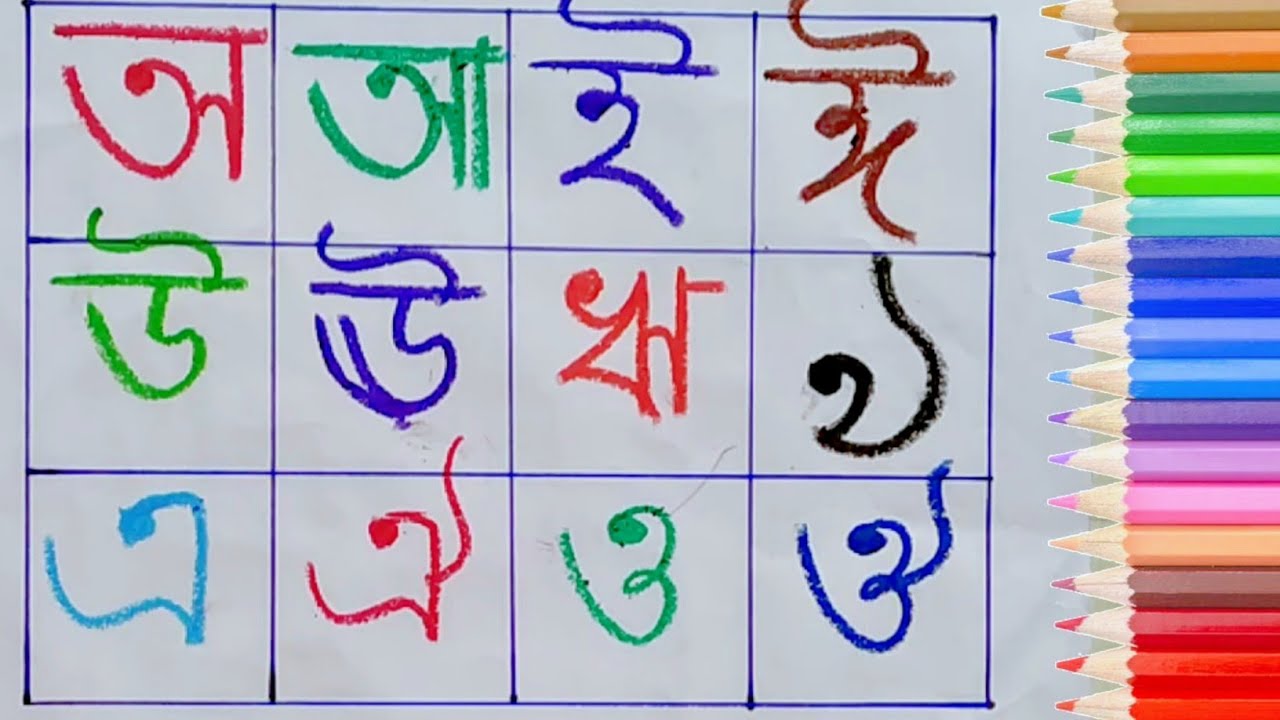 অ আ ই ঈ
উ ঊ ঋ ঌ
এ ঐ ও ঔ